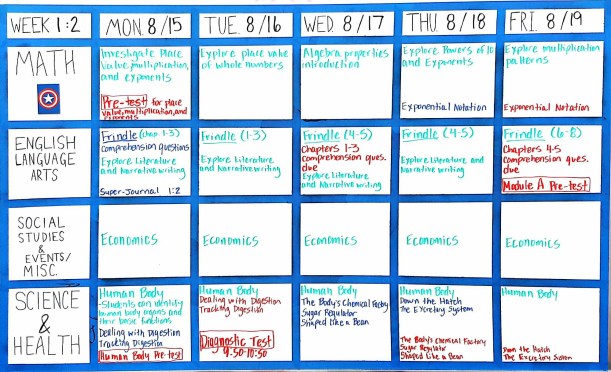 WEEK 1:2
MON. 8/15
TUE. 8/16
WED. 8/17
THU. 8/18
FRI. 8/19
MATH
Investigate Place
Value, multiplication,
and exponents
Pre-test for place
value, multiplication, and
exponents
Explore place value
of whole numbers
Algebra properties
introduction
Explore Powers of 10
and Exponents
Exponential Notation
Explore multiplication
patterns
Exponential Notation
ENGLISH
LANGUAGE
ARTS
Frindle (chap. 1-3)
comprehension questions
Explore Literature
and Narrative writing
Super-Journal 1:2
Frindle (1-3)
Explore Literature and
Narrative writing
Frindle (4-5)
Chapters 1-3
comprehension ques.
due
Explore Literature
and Narrative writing
Frindle (4-5)
Explore Literature and
Narrative writing
Frindle (6-8)
Chapters 4-5
comprehension ques.
due
Module A Pre-test
SOCIAL
STUDIES
&
EVENTS/
MISC.
Economics
Economics
Economics
Economics
Economics
SCIENCE
&
HEALTH
Human Body
-Students can identify
human body organs and
their basic functions
Dealing with Digestion
Tracking Digestion
Human Body Pre-test
Human Body
Dealing with Digestion
Tracking Digestion
Diagnostic Test
9:50-10:50
Human Body
The Body's Chemical Factory
Sugar Regulator
Shaped Like a Bean
Human Body
Down the Hatch
The Excretory System
The Body's Chemical Factory
Sugar Regulator
Shaped Like a Bean
Human Body
Down the Hatch
The Excretory System